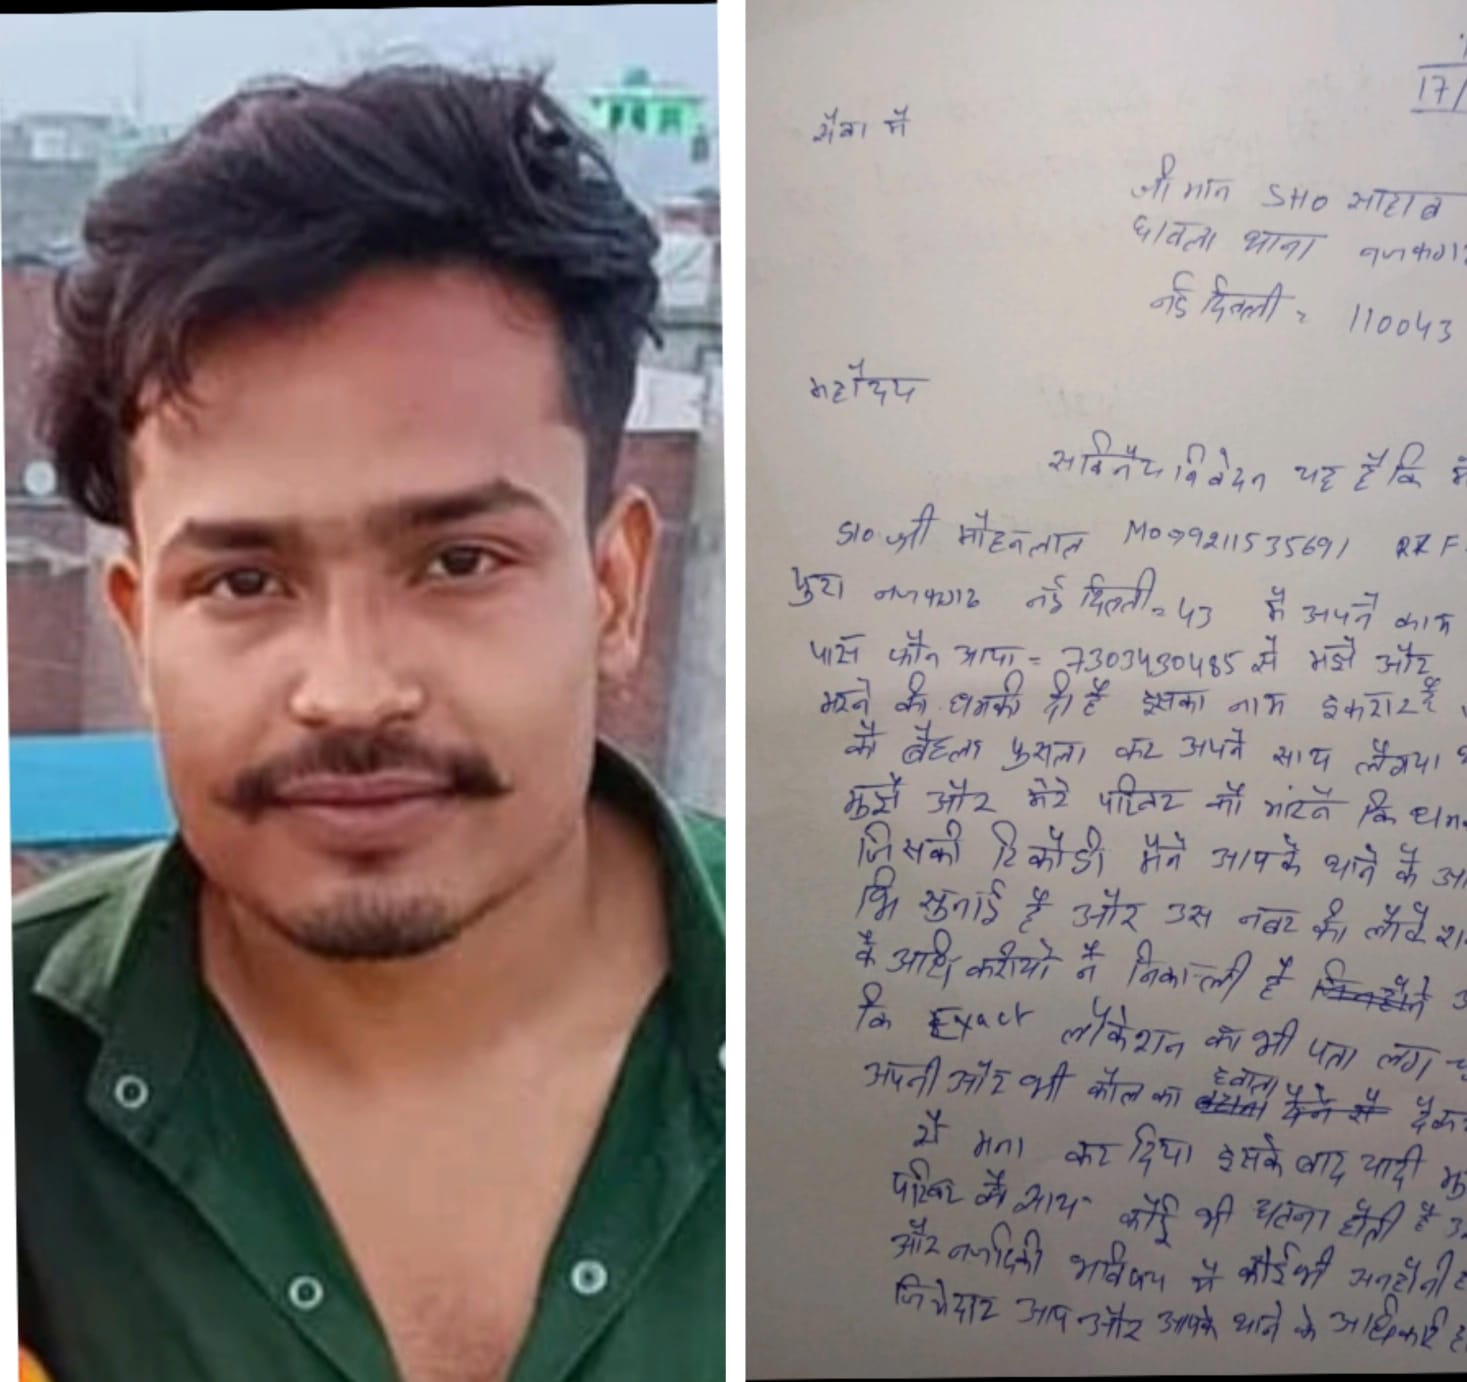 17/
सेवा मे
श्री मान SHO साहब
छावला थाना नजफगढ
नई दिल्ली = 110043
महोदय
सविनैय निवेदन यह है कि मै
S/o श्री मोहनलाल Mo 9211535691 RZ F-
पुरा नजफगढ नई दिल्ली = 43 मै अपने काम
पास फोन आया = 7303430485 से मुझे और
मारने की धमकी दी है इसका नाम इकरार है
को बैहला फुसला कर अपने साथ लेगया
मुझे और मेरे परिवार को मारने कि धम
जिसकी रिकोडी मैने आपके थाने के
भि सुनाई है और उस नंबर की लौकेश
के अधिकारीयो ने निकाली है
कि Exact लोकेशन का भी पता लग
अपनी और भी कौल का हवाला देकर
से मना कर दिया इसके बाद यादी
परिवार के साथ कोई भी घटना होती है
और नजदिकी भविषय में कोई भी अनहोनी
जिमेदार आप और आपके थाने के अधिकारी